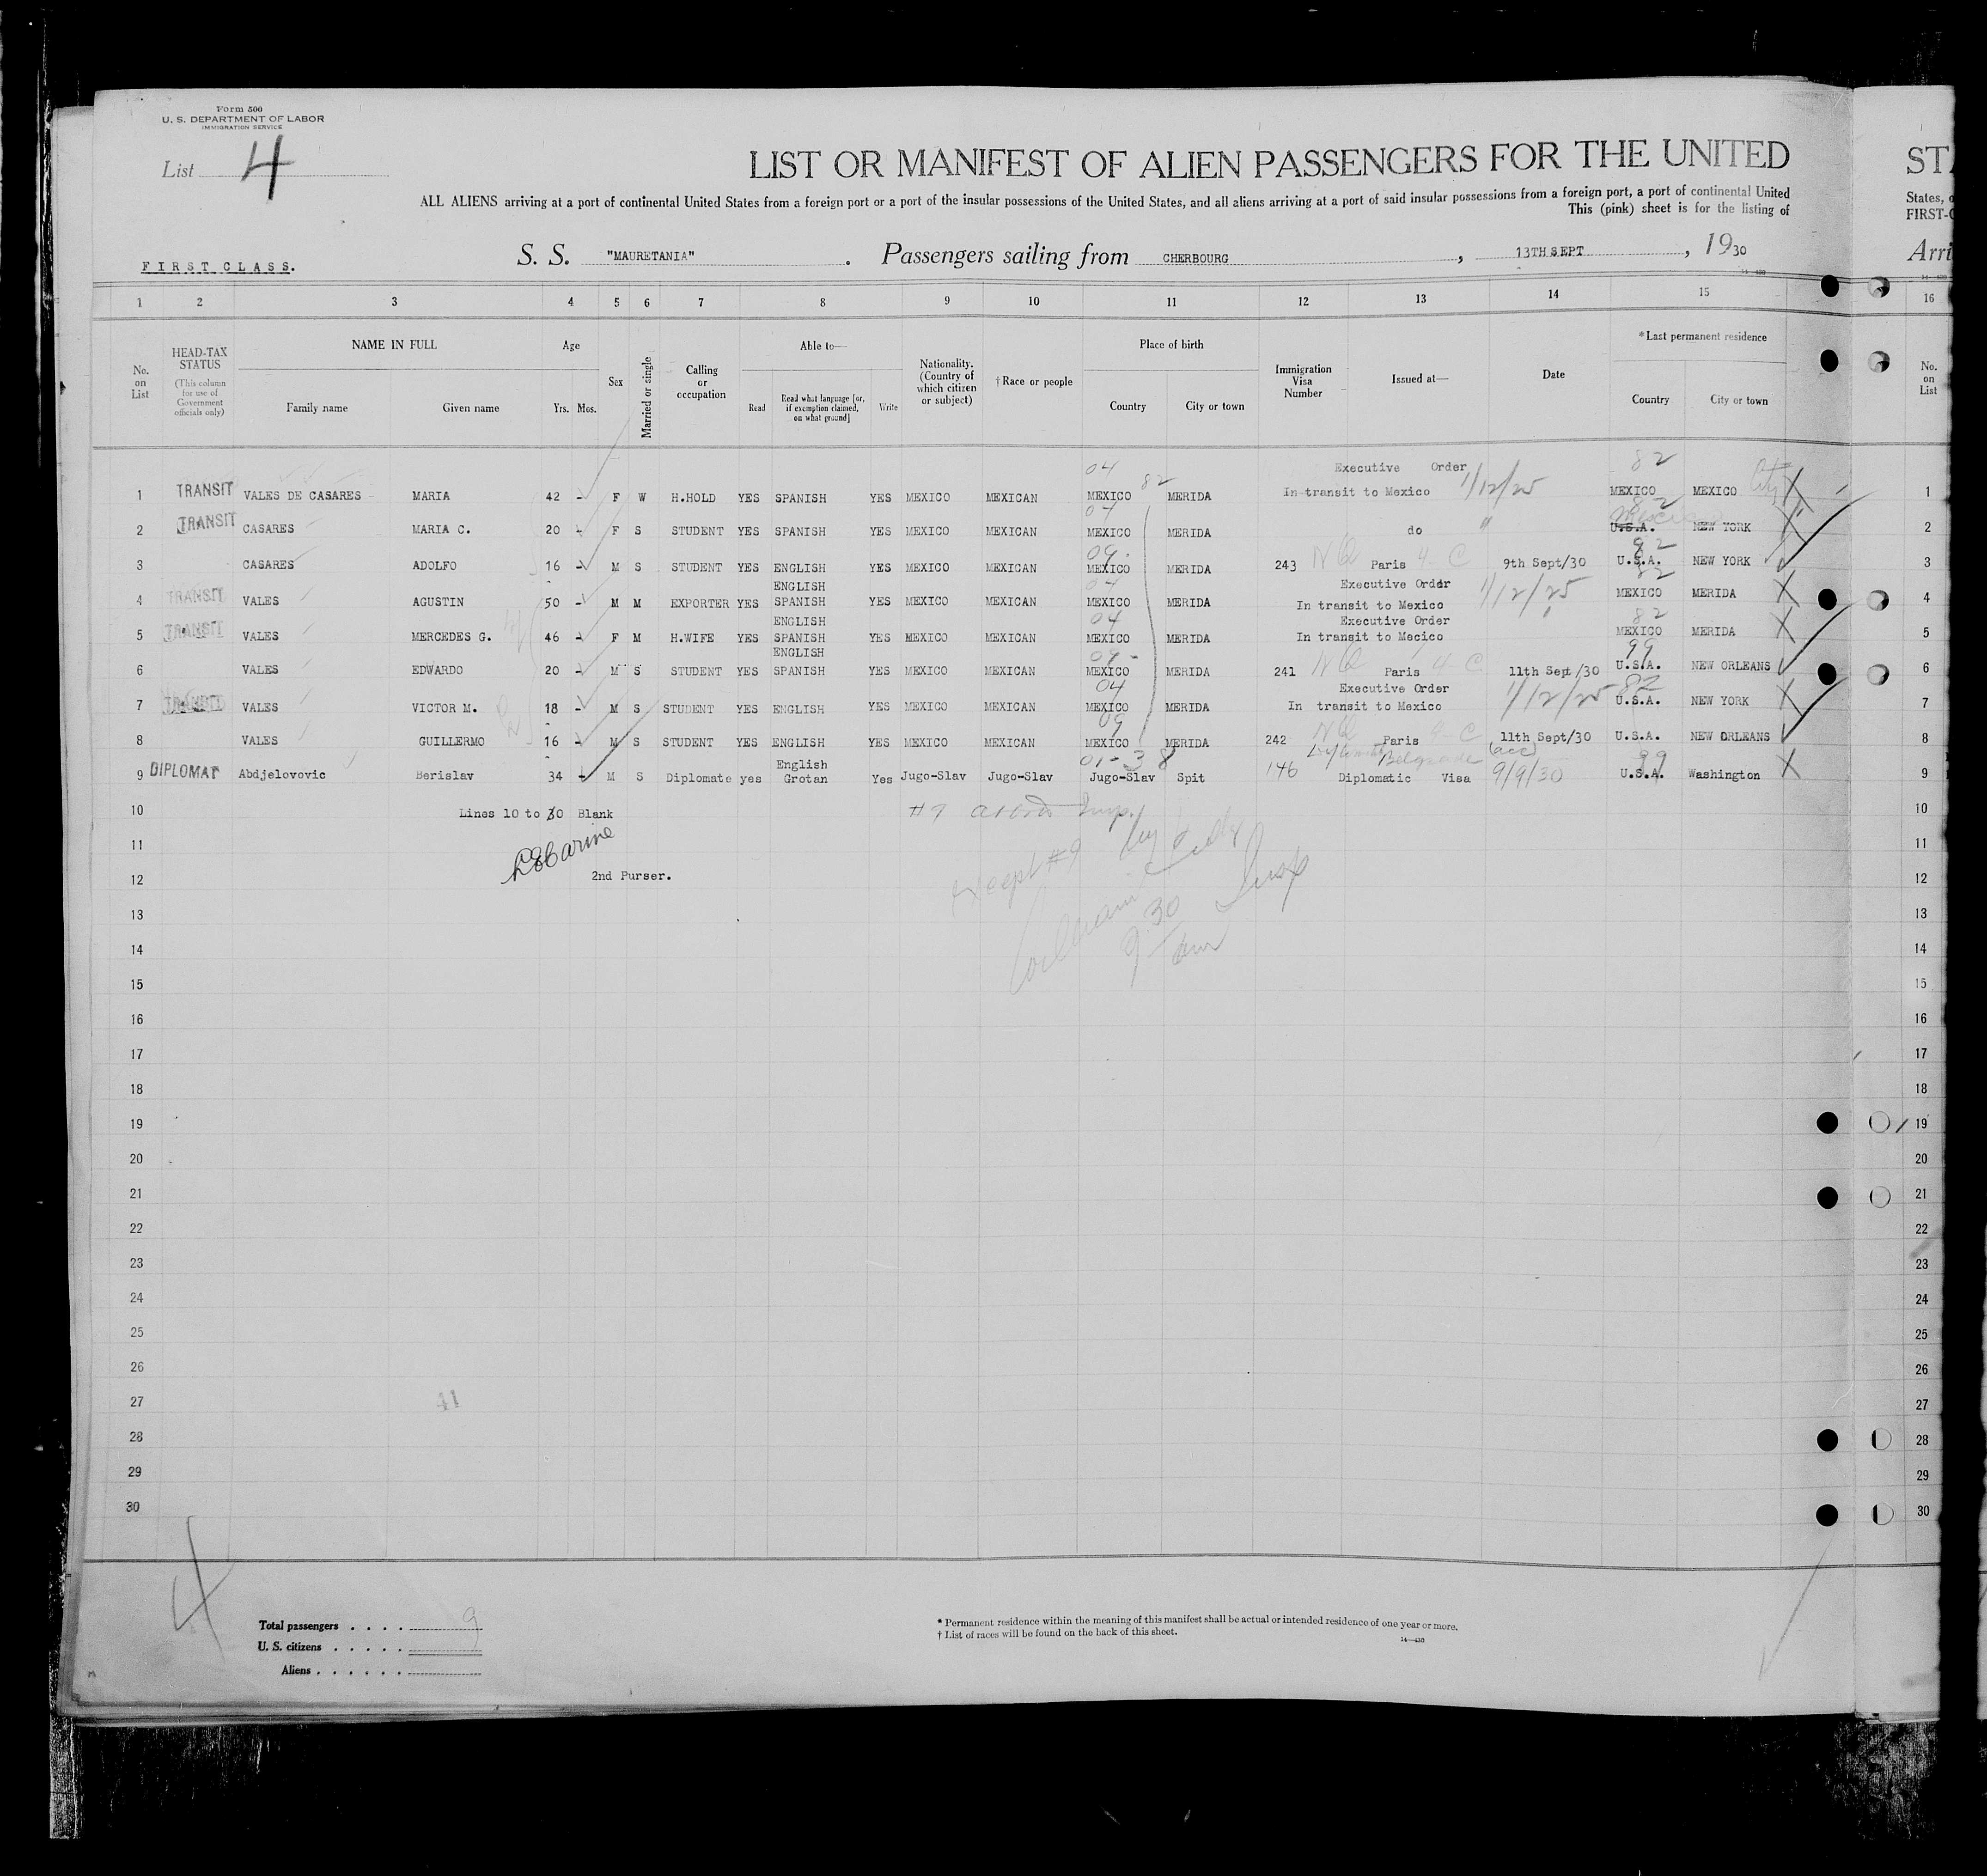 Form 500
U. S. DEPARTMENT OF LABOR
IMMIGRATION SERVICE
List 4
LIST OR MANIFEST OF ALIEN PASSENGERS FOR THE UNITED
ST
ALL ALIENS arriving at a port of continental United States from a foreign port or a port of the insular possessions of the United States, and all aliens arriving at a port of said insular possessions from a foreign port, a port of continental United
States,
This (pink) sheet is for the listing of
FIRST-
FIRST CLASS.
S. S. "MAURETANIA". Passengers sailing from CHERBOURG, 13TH SEPT, 1930
Arri
1 2 3 4 5 6 7 8 9 10 11 12 13 14 15 16
No. on List
HEAD-TAX STATUS
(This column for use of Government officials only)
NAME IN FULL
Family name Given name
Age
Yrs. Mos.
Sex
Married or single
Calling or occupation
Able to—
Read
Read what language [or, if exemption claimed, on what ground]
Write
Nationality. (Country of which citizen or subject)
†Race or people
Place of birth
Country City or town
Immigration Visa Number
Issued at—
Date
*Last permanent residence
Country City or town
No. on List
04 82 Executive Order 1/12/25 82
1 TRANSIT VALES DE CASARES MARIA 42 - F W H.HOLD YES SPANISH YES MEXICO MEXICAN MEXICO MERIDA In transit to Mexico MEXICO MEXICO City 1
04 82
2 TRANSIT CASARES MARIA C. 20 - F S STUDENT YES SPANISH YES MEXICO MEXICAN MEXICO MERIDA do " U.S.A. Mexico NEW YORK 2
09. 82
3 CASARES ADOLFO 16 - M S STUDENT YES ENGLISH YES MEXICO MEXICAN MEXICO MERIDA 243 NQ Paris 4-C 9th Sept/30 U.S.A. NEW YORK 3
ENGLISH 04 Executive Order 1/12/25 82
4 TRANSIT VALES AGUSTIN 50 - M M EXPORTER YES SPANISH YES MEXICO MEXICAN MEXICO MERIDA In transit to Mexico MEXICO MERIDA 4
ENGLISH 04 Executive Order 82
5 TRANSIT VALES MERCEDES G. 46 - F M H.WIFE YES SPANISH YES MEXICO MEXICAN MEXICO MERIDA In transit to Mecico MEXICO MERIDA 5
ENGLISH 09- 99
6 VALES EDWARDO 20 - M S STUDENT YES SPANISH YES MEXICO MEXICAN MEXICO MERIDA 241 NQ Paris 4-C 11th Sept/30 U.S.A. NEW ORLEANS 6
04 Executive Order 1/12/25 82
7 TRANSIT VALES VICTOR M. 18 - M S STUDENT YES ENGLISH YES MEXICO MEXICAN MEXICO MERIDA In transit to Mexico U.S.A. NEW YORK 7
09
8 VALES GUILLERMO 16 - M S STUDENT YES ENGLISH YES MEXICO MEXICAN MEXICO MERIDA 242 NQ Paris 4-C 11th Sept/30 U.S.A. NEW ORLEANS 8
English 01-38 Belgrade (acc) 99
9 DIPLOMAT Abdjelovovic Berislav 34 - M S Diplomate yes Grotan Yes Jugo-Slav Jugo-Slav Jugo-Slav Spit 146 Diplomatic Visa 9/9/30 U.S.A. Washington 9
10 Lines 10 to 30 Blank #9 10
11 11
12 2nd Purser. except #9 Insp 12
13 30 13
14 9 14
15 15
16 16
17 17
18 18
19 19
20 20
21 21
22 22
23 23
24 24
25 25
26 26
27 41 27
28 28
29 29
30 30
4
Total passengers . . . . 9
U. S. citizens . . . . .
Aliens . . . . . .
* Permanent residence within the meaning of this manifest shall be actual or intended residence of one year or more.
† List of races will be found on the back of this sheet.
14—430